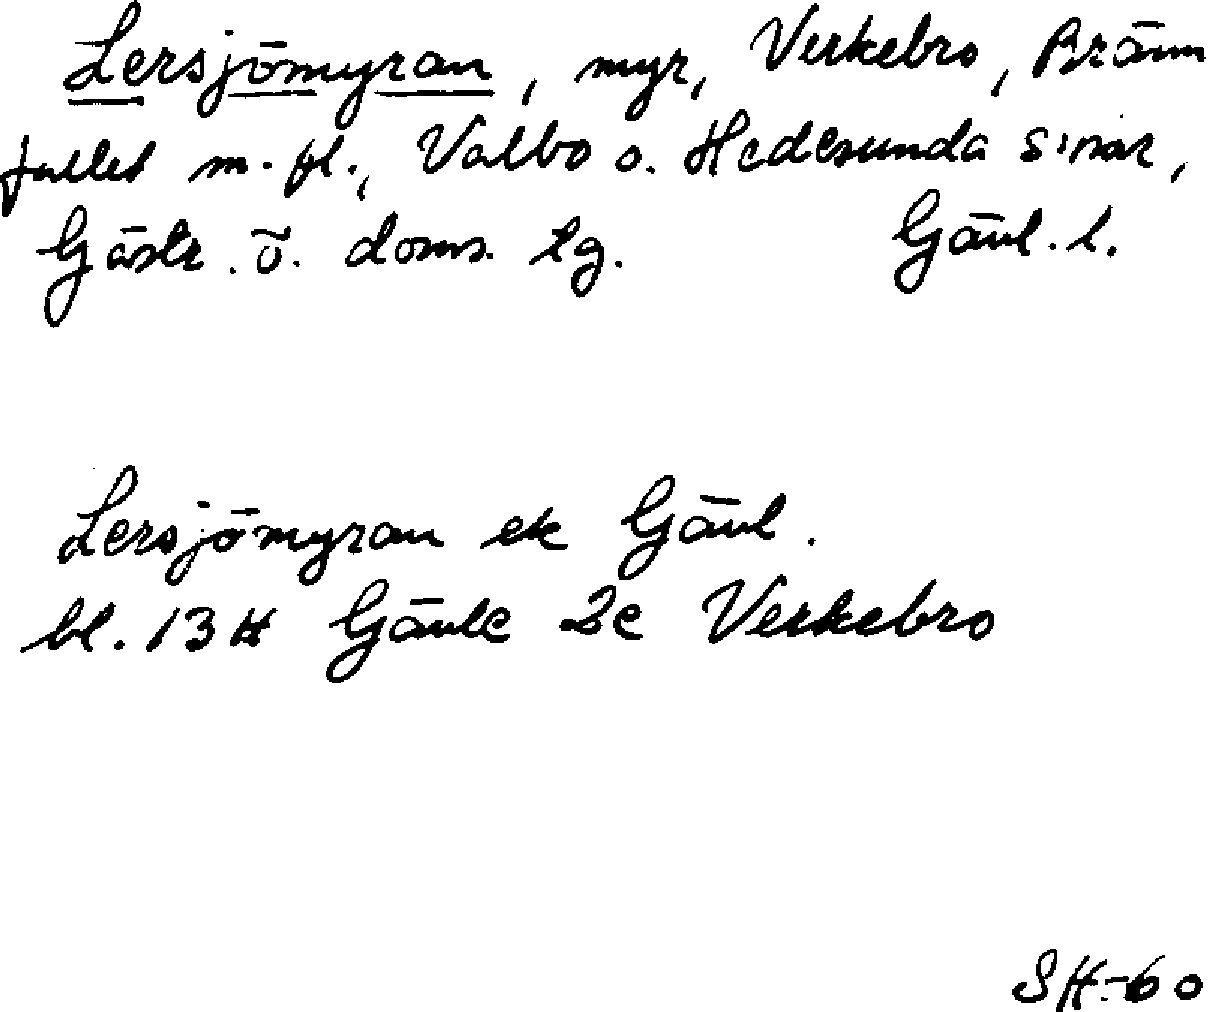 Lersjömyran, myr, Verkebro, Bränn
fallet m. fl., Valbo o. Hedesunda s:nar,
Gästr. ö. doms. lg. Gävl. l.
Lersjömyran ek Gävl.
bl. 13 H Gävle 2c Verkebro
SH-60